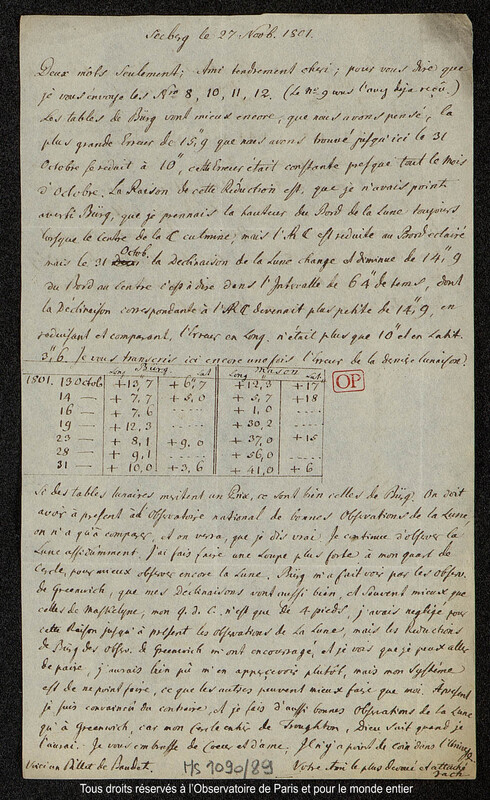 Seeberg le 27 Novb. 1801.
Deux mots seulement; Ami tendrement cheri; pour vous dire que
je vous envoye les Nro 8, 10, 11, 12. (Le no 9 vous l'avez deja reçû.)
Les tables de Bürg vont mieux encore, que nous avons pensé, la
plus grande Erreur de 15",9 que nous avons trouvé jusqu'ici le 31
Octobre se reduit à 10", cette Erreur était constante presque tout le mois
d'Octobre. La Raison de cette Reduction est, que je n'avais point
averti Bürg, que je prennais la hauteur du Bord de la Lune toujours
lorsque le Centre de la ☾ culmine; mais l'AR est reduite au Bord eclairé
mais le 31 Octob. la Declinaison de la Lune change et diminue de 14",9
du Bord au Centre c'est à dire dans l'Intervalle de 64" de tems, dont
la Declinaison correspondante à l'AR ☾ devenait plus petite de 14",9, en
reduisant et comparant, l'Erreur en Long. n'était plus que 10" et en Latit.
3",6. Je vous transcris ici encore une fois l'Erreur de la derniere lunaison.
Bürg Mason
Long Lat Long Lat
1801. 13 Octob + 13",7 + 6",7 + 12",3 + 17
14 — + 7,7 + 5,0 + 5,7 + 18
16 — + 7,6 ---- + 1,0 ----
19 — + 12,3 ---- + 30,2 ----
23 — + 8,1 + 9,0 + 37,0 + 15
28 — + 9,1 ---- + 56,0 ----
31 — + 10,0 + 3,6 + 41,0 + 6
OP
Si des tables lunaires meritent un Prix, ce sont bien celles de Bürg. On doit
avoir à present à l'Observatoire national de bonnes Observations de la Lune,
on n'a qu'à comparer, et on verra, que je dis vrai. Je continue d'observer la
Lune assidument. J'ai fait faire une Loupe plus forte à mon quart de
Cercle, pour mieux observer encore la Lune. Bürg m'a fait voir par les Observ.
de Greenwich, que mes declinaisons vont aussi bien, et souvent mieux que
celles de Maskelyne, mon q. d. C. n'est que de 4 pieds, j'avais negligé pour
cette Raison jusqu'à present les Observations de la Lune, mais les Reductions
de Bürg des Observ. de Greenwich m'ont encouragé, et je vois que je peux aller
de paire, j'aurais bien pû m'en appercevoir plutôt, mais mon systême
est de ne point faire, ce que les autres peuvent mieux faire que moi. Apresent
je suis convaincu du contraire, et je fais d'aussi bonnes Observations de la Lune
qu'à Greenwich, car mon Cercle entier de Troughton, Dieu sait quand je
l'aurai. Je vous embrasse de Coeur et d'ame. Il n'y a point de Coin dans l'Univers
Voici un Billet de Votre Ami le plus devoué et attaché
Zach
MS 1090/89
Tous droits réservés à l'Observatoire de Paris et pour le monde entier